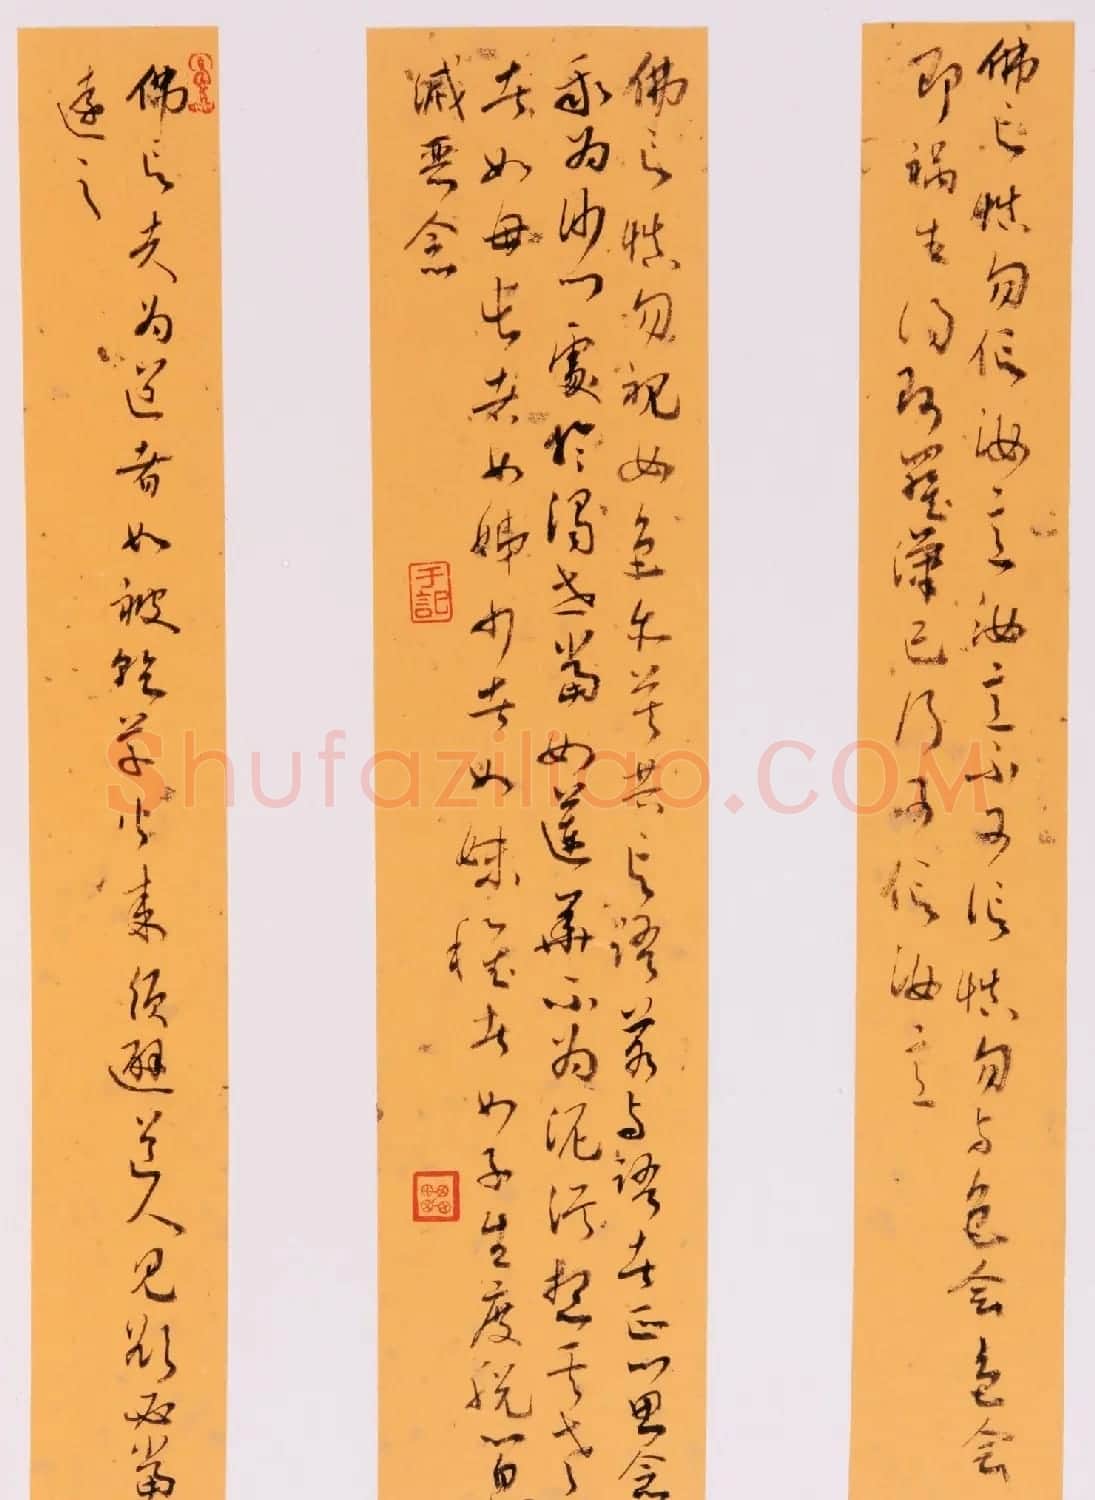 佛言慎勿信汝意汝意不可信慎勿与色会色会
即禍生得阿羅漢已乃可信汝意
佛言慎勿視女色亦莫共言語若与語者正心思念
我為沙門處於濁世當如蓮華不為泥污想其老
者如母長者如姊少者如妹稚者如子生度脫心息
滅惡念
于記
佛言夫為道者如被乾草火來須避道人見欲必當
遠之
Shufaziliao.COM